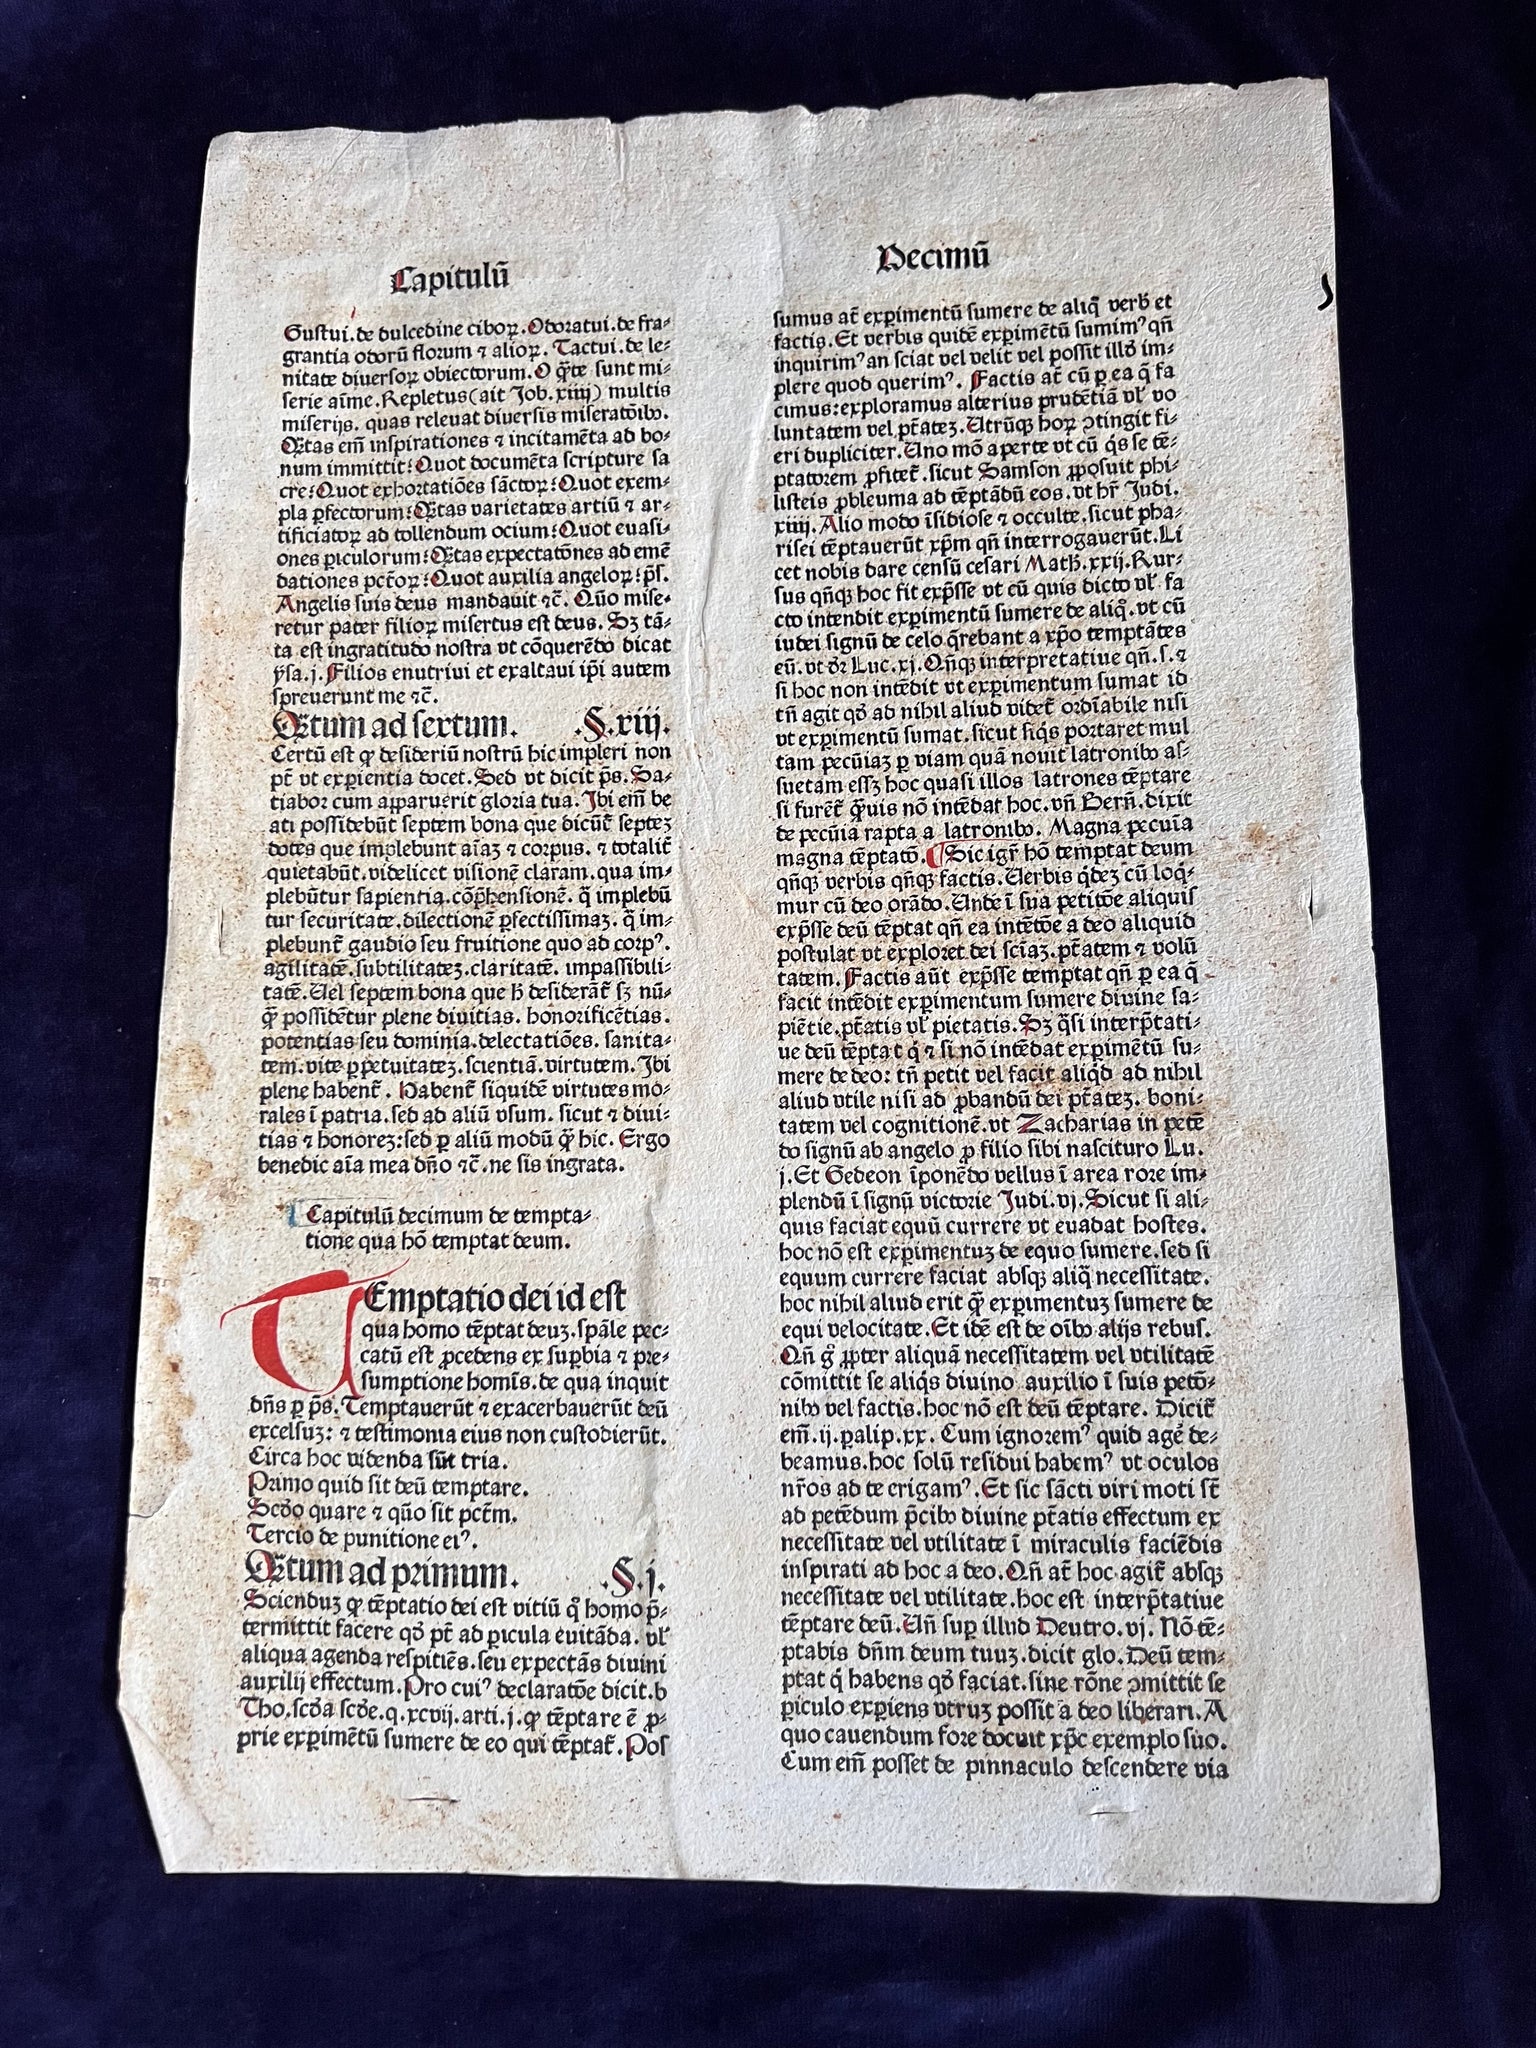 Capitulū
Gustui. de dulcedine ciboꝝ. Odoratui. de fra⸗
grantia odorū florum ⁊ alioꝝ. Tactui. de le⸗
nitate diuersoꝝ obiectorum. O q̄te sunt mi⸗
serie aīme. Repletus (ait Job. xiiij) multis
miserijs. quas releuat diuersis miseratōib⁹.
Q̄tas em̄ inspirationes ⁊ incitamēta ad bo⸗
num immittit: Quot documēta scripture sa
cre: Quot exhortatiōes sāctoꝝ: Quot exem⸗
pla ꝑfectorum: Q̄tas varietates artiū ⁊ ar⸗
tificiatoꝝ ad tollendum ocium: Quot euasi⸗
ones piculorum: Q̄tas expectatōnes ad emē
dationes pctōꝝ: Quot auxilia angeloꝝ: p̄s.
Angelis suis deus mandauit ⁊c̄. Quō mise⸗
retur pater filioꝝ misertus est deus. Sꝫ tā⸗
ta est ingratitudo nostra vt cōquerēdo dicat
ysa. j. Filios enutriui et exaltaui ip̄i autem
spreuerunt me ⁊c̄.
Q̄tum ad sextum. .§. xiij.
Certū est ꝙ desideriū nostrū hic impleri non
pt̄ vt expientia docet. Sed vt dicit p̄s. Sa⸗
tiabor cum apparuerit gloria tua. Ibi em̄ be
ati possidebūt septem bona que dicūt̄ septeꝫ
dotes que implebunt aīaꝫ ⁊ corpus. ⁊ totalit̄
quietabūt. videlicet visionē claram. qua im⸗
plebūtur sapientia. cōp̄hensionē. q̄ implebū
tur securitate. dilectionē ꝑfectissimaꝫ. q̄ im⸗
plebunt̄ gaudio seu fruitione quo ad corp⁹.
agilitatē. subtilitateꝫ. claritatē. impassibili⸗
tatē. Uel septem bona que h̄ desiderāt̄ sꝫ nū⸗
q̄ possidētur plene diuitias. honorificētias.
potentias seu dominia. delectatiōes. sanita⸗
tem. vite ꝑpetuitateꝫ. scientiā. virtutem. Ibi
plene habent̄. Habent̄ siquidē virtutes mo⸗
rales ī patria. sed ad aliū vsum. sicut ⁊ diui⸗
tias ⁊ honoreꝫ: sed ꝑ aliū modū q̄ hic. Ergo
benedic aīa mea dn̄o ⁊c̄. ne sis ingrata.
Capitulū decimum de tempta⸗
tione qua hō temptat deum.
TEmptatio dei id est
qua homo tēptat deuꝫ. spāle pec⸗
catū est ꝓcedens ex supbia ⁊ pre⸗
sumptione homīs. de qua inquit
dn̄s ꝑ p̄s. Temptauerūt ⁊ exacerbauerūt deū
excelsuꝫ: ⁊ testimonia eius non custodierūt.
Circa hoc videnda sūt tria.
Primo quid sit deū temptare.
Scd̄o quare ⁊ quō sit pctm̄.
Tercio de punitione ei⁹.
Q̄tum ad primum. .§. j.
Scienduꝫ ꝙ tēptatio dei est vitiū q̄ homo p̄⸗
termittit facere qd̄ pt̄ ad picula euitāda. vl̄
aliqua agenda respitiēs. seu expectās diuini
auxilij effectum. Pro cui⁹ declaratōe dicit. b
Tho. scd̄a scd̄e. q. xcvij. arti. j. ꝙ tēptare ē ꝓ⸗
prie expimētū sumere de eo qui tēptat̄. Pos
Decimū
sumus at̄ expimentū sumere de aliq̄ verb̄ et
factis. Et verbis quidē expimētū sumim⁹ qn̄
inquirim⁹ an sciat vel velit vel possit illd̄ im⸗
plere quod querim⁹. Factis at̄ cū ꝑ ea q̄ fa
cimus: exploramus alterius prudētiā vl̄ vo
luntatem vel pt̄ateꝫ. Utrūqꝫ hoꝝ ↄtingit fi⸗
eri dupliciter. Uno mō aperte vt cū q̄s se tē⸗
ptatorem ꝓfitet̄. sicut Samson ꝓposuit phi⸗
listeis ꝓbleuma ad tēptādū eos. vt hr̄ Judi.
xiiij. Alio modo īsidiose ⁊ occulte. sicut pha⸗
risei tēptauerūt xp̄m qn̄ interrogauerūt. Li
cet nobis dare censū cesari Math. xxij. Rur⸗
sus qn̄qꝫ hoc fit exp̄sse vt cū quis dicto vl̄ fa
cto intendit expimentū sumere de aliq̄. vt cū
iudei signū de celo q̄rebant a xp̄o temptātes
eū. vt dr̄ Luc. xj. Qn̄qꝫ interpretatiue qn̄. s. ⁊
si hoc non intēdit vt expimentum sumat id
tn̄ agit qd̄ ad nihil aliud videt̄ ordiābile nisi
vt expimentū sumat. sicut siq̄s portaret mul
tam pecūiaꝫ ꝑ viam quā nouit latronib⁹ as⸗
suetam essꝫ hoc quasi illos latrones tēptare
si furēt̄ q̄uis nō intēdat hoc. vn̄ Bern̄. dixit
de pecūia rapta a latronib⁹. Magna pecuīa
magna tēptatō. ¶Sic igr̄ hō temptat deum
qn̄qꝫ verbis qn̄qꝫ factis. Uerbis q̄deꝫ cū loq̄⸗
mur cū deo orādo. Unde ī sua petitōe aliquis
exp̄sse deū tēptat qn̄ ea intētōe a deo aliquid
postulat vt exploret dei sciāꝫ. pt̄atem ⁊ volū
tatem. Factis aūt exp̄sse temptat qn̄ ꝑ ea q̄
facit intēdit expimentum sumere diuine sa⸗
piētie. pt̄atis vl̄ pietatis. Sꝫ q̄si interp̄tati⸗
ue deū tēptat q̄ ⁊ si nō intēdat expimētū su⸗
mere de deo: tn̄ petit vel facit aliq̄d ad nihil
aliud vtile nisi ad ꝓbandū dei pt̄ateꝫ. boni⸗
tatem vel cognitionē. vt Zacharias in petē
do signū ab angelo ꝓ filio sibi nascituro Lu.
j. Et Gedeon īponēdo vellus ī area rore im⸗
plendū ī signū victorie Judi. vj. Sicut si ali⸗
quis faciat equū currere vt euadat hostes.
hoc nō est expimentuꝫ de equo sumere. sed si
equum currere faciat absqꝫ aliq̄ necessitate.
hoc nihil aliud erit q̄ expimentuꝫ sumere de
equi velocitate. Et idē est de oīb⁹ alijs rebus.
Qn̄ gͦ ꝓpter aliquā necessitatem vel vtilitatē
cōmittit se aliq̄s diuino auxilio ī suis petō⸗
nib⁹ vel factis. hoc nō est deū tēptare. Dicit̄
em̄. ij. palip. xx. Cum ignorem⁹ quid agē de⸗
beamus. hoc solū residui habem⁹ vt oculos
nr̄os ad te erigam⁹. Et sic sācti viri moti st̄
ad petēdum p̄cib⁹ diuine pt̄atis effectum ex
necessitate vel vtilitate ī miraculis faciēdis
inspirati ad hoc a deo. Qn̄ at̄ hoc agit̄ absqꝫ
necessitate vel vtilitate. hoc est interp̄tatiue
tēptare deū. Un̄ sup illud Deutro. vj. Nō tē⸗
ptabis dn̄m deum tuuꝫ. dicit glo. Deū tem⸗
ptat q̄ habens qd̄ faciat. sine rōne ↄmittit se
piculo expiens vtruꝫ possit a deo liberari. A
quo cauendum fore docuit xp̄c exemplo suo.
Cum em̄ posset de pinnaculo descendere via